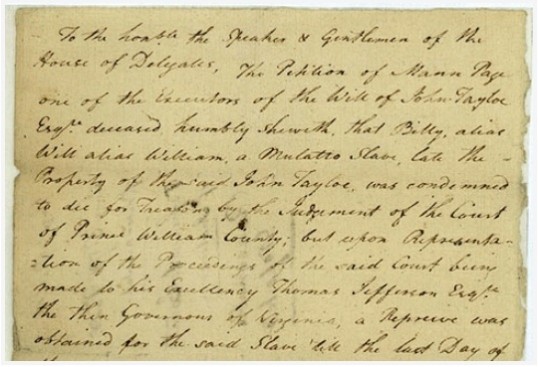 To the honble the Speaker & Gentlemen of the
House of Delegates, The Petition of Mann Page
one of the Executors of the Will of John Tayloe
Esqr. deceased humbly sheweth, that Billy, alias
Will alias William, a Mulatto Slave, late the
Property of the said John Tayloe, was condemned
to die for Treason by the Judgement of the Court
of Prince William County; but upon Representa-
-tion of the Proceedings of the said Court being
made to his Excellency Thomas Jefferson Esqr.
the then Governour of Virginia, a Reprieve was
obtained for the said Slave 'till the last Day of